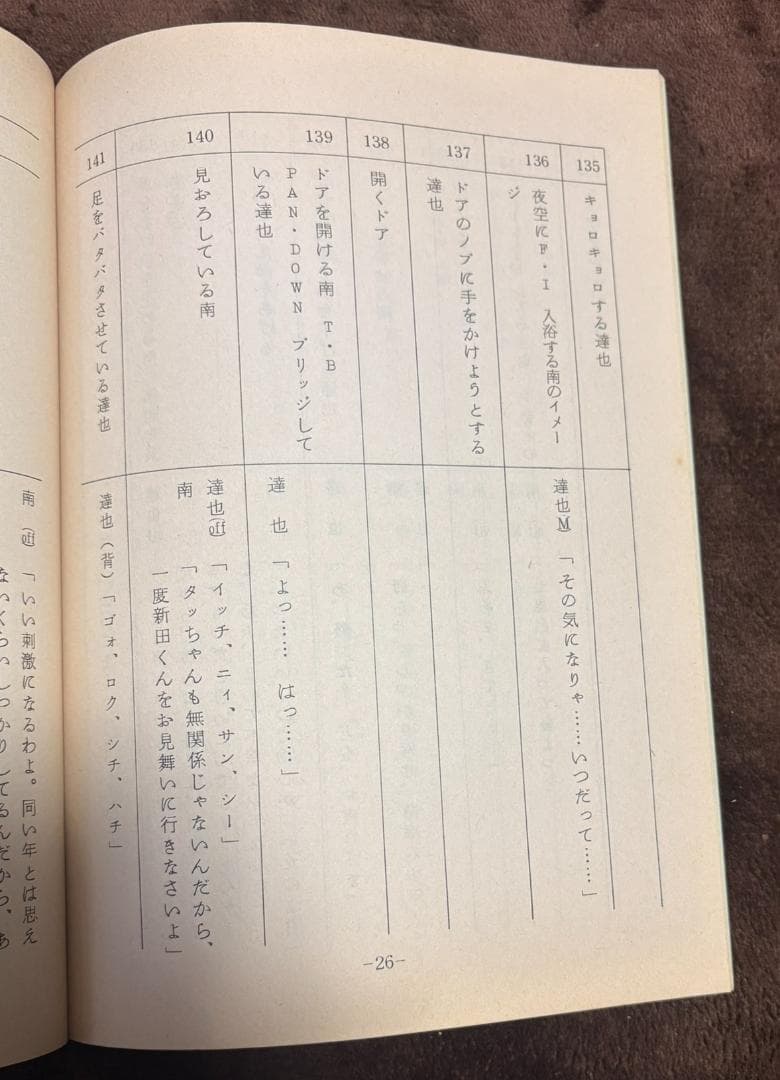 135
キョロキョロする達也
136
夜空にF・I　入浴する南のイメー
ジ
達也(M)「その気になりゃ……いつだって……」
137
ドアのノブに手をかけようとする
達也
138
開くドア
139
ドアを開ける南　T・B
PAN・DOWN　ブリッジして
いる達也
達　也　「よっ……　はっ……」
140
見おろしている南
達也(off)「イッチ、ニィ、サン、シー」
南　「タッちゃんも無関係じゃないんだから、
一度新田くんをお見舞いに行きなさいよ」
141
足をバタバタさせている達也
達也（背）「ゴォ、ロク、シチ、ハチ」
南(off)「いい刺激になるわよ。同い年とは思え
ないくらいしっかりしてるんだから、あ
-26-